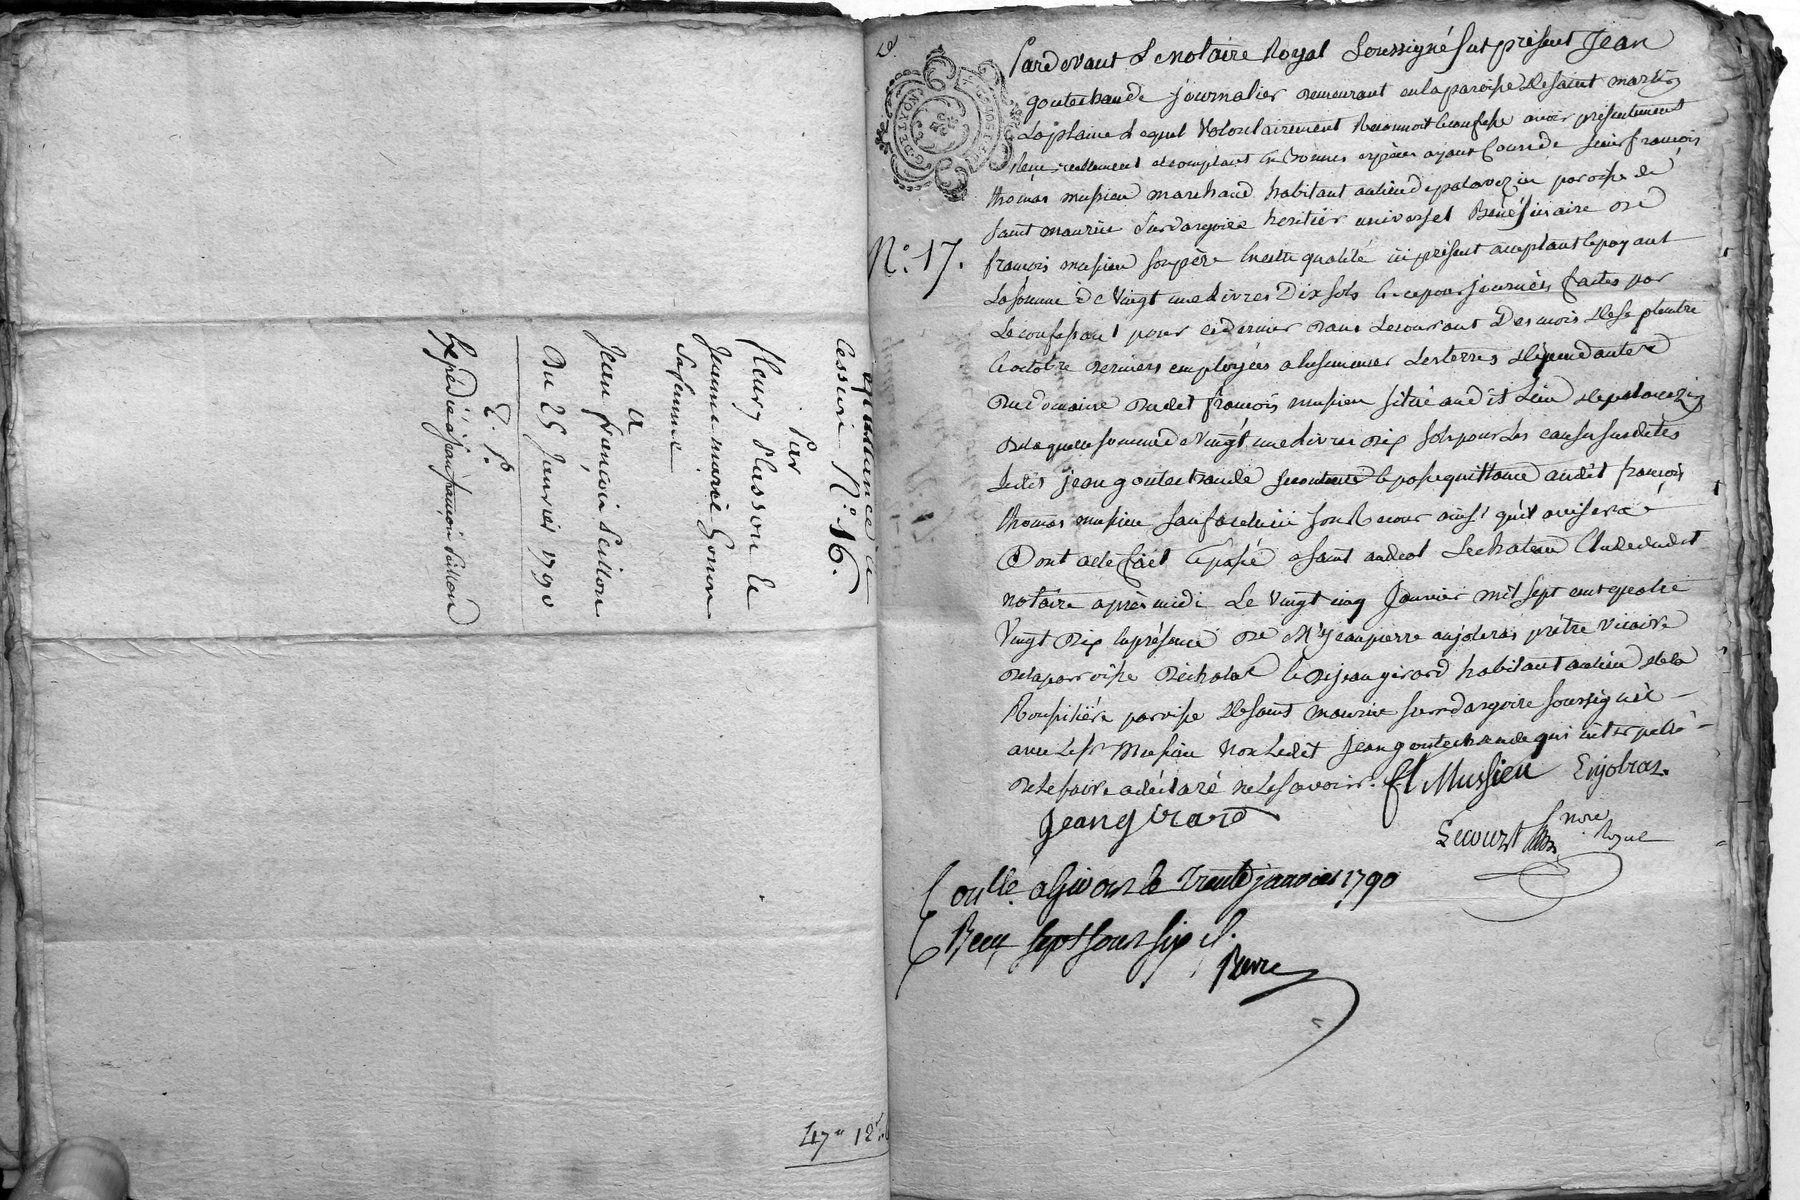 quittance et
Cession N.° 16.
Par
fleury Plasson et
Jeanne marie Gonon
Sa femme
a
Jean françois Seillon
Du 25 Janvier 1790
Expedié a jean françois Seillon
47" 12
G. DE LYON
N.° 17.
Pardevant Le Notaire Royal Soussigné fut présent Jean
goutechaude journalier demeurant en la paroisse de saint martin
La plaine Lequel Volontairement Reconnoit et confesse avoir présentement
Recu réellement et comptant en bonnes espèces ayant Cours de sieur françois
thomas mussieu marchand habitant au lieu de palavezin paroisse de
saint maurice Sur dargoire heritier universel Bénéficiaire de
françois mussieu son père En cette qualité ici présent acceptant et payant
La somme de Vingt une Livres Dix sols Et ce pour journées faites par
Le confessant pour ce dernier dans Le courant Des mois De septembre
Et octobre derniers employées a Ensemencer Les terres dépendantes
du domaine dudit françois mussieu situé audit Lieu de palavezin
De laquelle somme de Vingt une Livres dix sols pour Les causes susdites
Ledit jean goutechaude se contente et passe quittance audit françois
thomas mussieu sauf a celui ci son Recour ainsi qu'il avisera
Dont acte fait Et passé a saint andeol Le chateau Etude dudit
notaire après midi Le Vingt cinq Janvier mil sept cent quatre
Vingt dix En présence de M.e jean pierre anjolras prêtre Vicaire
de la paroisse D'échalas Et de jean girard habitant au lieu de la
Roussilière paroisse De saint maurice sur dargoire soussignés
avec Le sr Mussieu Non Ledit Jean goutechaude qui interpellé
De Le faire a déclaré ne Le savoir. ft Mussieu Enjolras.
Jean girard
Lecourt
nore Royal
Conllé a Givors le Trente janvier 1790
Reçu sept sous six d.